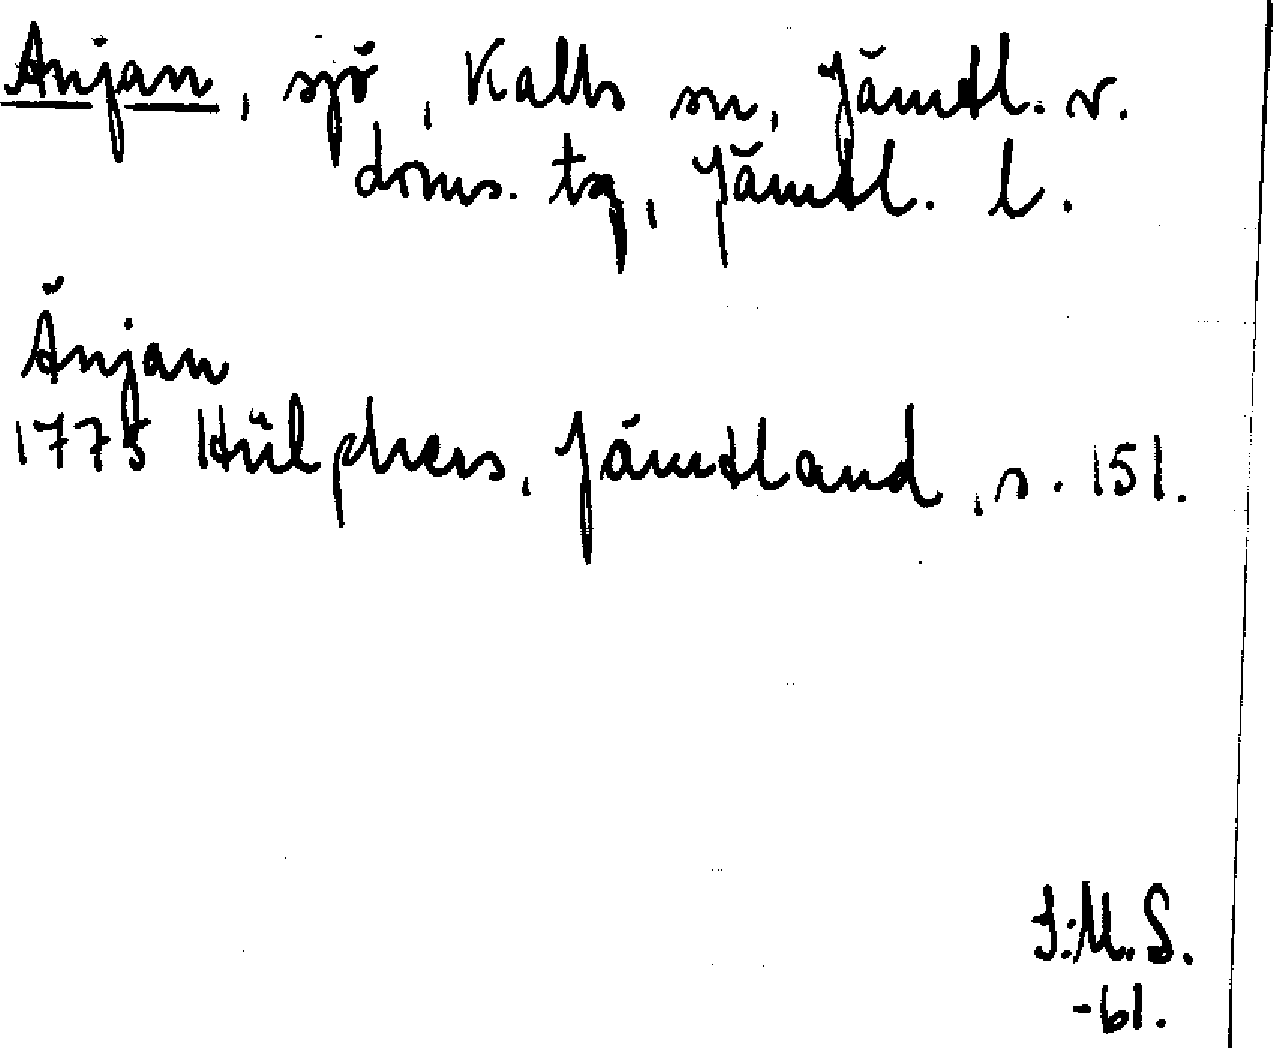 Anjan, sjö, Kalls sn, Jämtl. v.
doms. tg, Jämtl. l.
Änjan
1775 Hülphers, Jämtland, s. 151.
I.M.S.
-61.